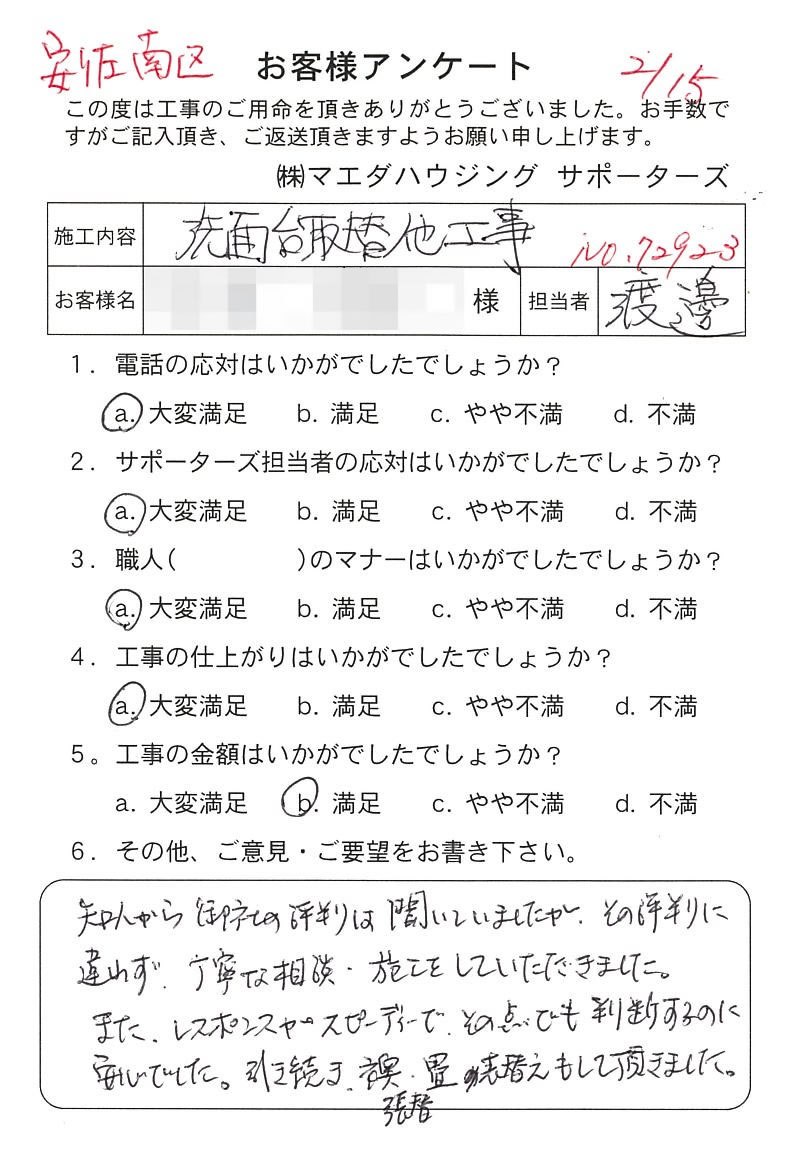 安佐南区 お客様アンケート 2/15
この度は工事のご用命を頂きありがとうございました。お手数で
すがご記入頂き、ご返送頂きますようお願い申し上げます。
㈱マエダハウジング サポーターズ
施工内容 洗面台取替他工事 NO.72923
お客様名 様 担当者 渡邊
1. 電話の応対はいかがでしたでしょうか？
a. 大変満足 b. 満足 c. やや不満 d. 不満
2. サポーターズ担当者の応対はいかがでしたでしょうか？
a. 大変満足 b. 満足 c. やや不満 d. 不満
3. 職人( )のマナーはいかがでしたでしょうか？
a. 大変満足 b. 満足 c. やや不満 d. 不満
4. 工事の仕上がりはいかがでしたでしょうか？
a. 大変満足 b. 満足 c. やや不満 d. 不満
5。工事の金額はいかがでしたでしょうか？
a. 大変満足 b. 満足 c. やや不満 d. 不満
6. その他、ご意見・ご要望をお書き下さい。
知人から御社の評判は聞いていましたが、その評判に
違わず、丁寧な相談・施工をしていただきました。
また、レスポンスやスピーディーで、その点でも判断するのに
安心でした。引き続き、襖・畳の表替えもして頂きました。
張替